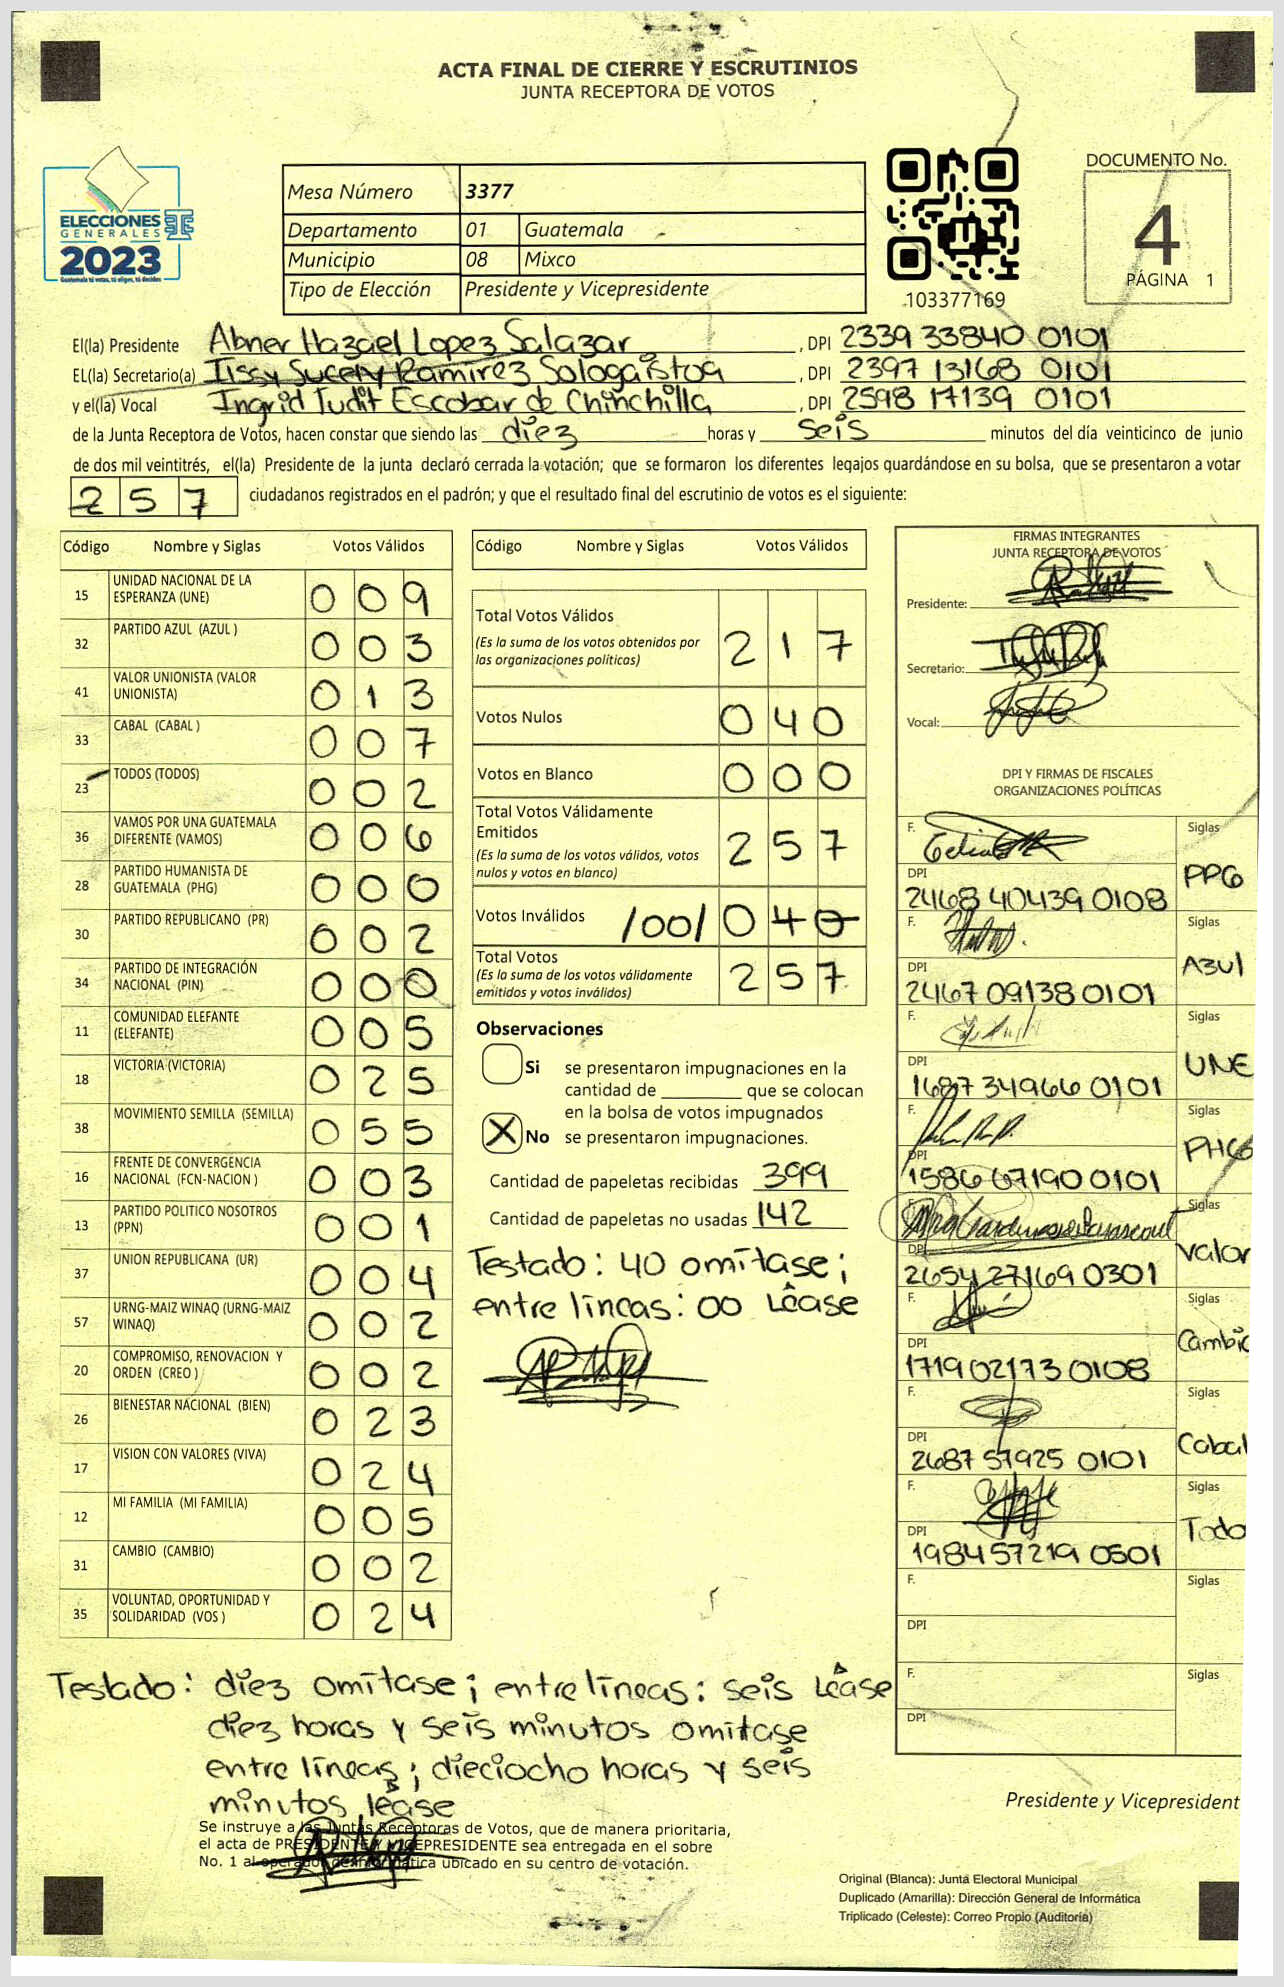 ACTA FINAL DE CIERRE Y ESCRUTINIOS
JUNTA RECEPTORA DE VOTOS
ELECCIONES
GENERALES
2023
Guatemala tú votas, tú eliges, tú decides
Mesa Número 3377
Departamento 01 Guatemala
Municipio 08 Mixco
Tipo de Elección Presidente y Vicepresidente
103377169
DOCUMENTO No.
4
PÁGINA 1
El(la) Presidente Abner Hazael Lopez Salazar, DPI 2339 33840 0101
EL(la) Secretario(a) Tissy Sucery Ramirez Sologaistoa, DPI 2397 13168 0101
y el(la) Vocal Ingrid Iudit Escobar de Chinchilla, DPI 2598 17139 0101
de la Junta Receptora de Votos, hacen constar que siendo las diez horas y seis minutos del día veinticinco de junio
de dos mil veintitrés, el(la) Presidente de la junta declaró cerrada la votación; que se formaron los diferentes legajos guardándose en su bolsa, que se presentaron a votar
257 ciudadanos registrados en el padrón; y que el resultado final del escrutinio de votos es el siguiente:
Código Nombre y Siglas Votos Válidos
15 UNIDAD NACIONAL DE LA ESPERANZA (UNE) 009
32 PARTIDO AZUL (AZUL ) 003
41 VALOR UNIONISTA (VALOR UNIONISTA) 013
33 CABAL (CABAL ) 007
23 TODOS (TODOS) 002
36 VAMOS POR UNA GUATEMALA DIFERENTE (VAMOS) 006
28 PARTIDO HUMANISTA DE GUATEMALA (PHG) 000
30 PARTIDO REPUBLICANO (PR) 002
34 PARTIDO DE INTEGRACIÓN NACIONAL (PIN) 000
11 COMUNIDAD ELEFANTE (ELEFANTE) 005
18 VICTORIA (VICTORIA) 025
38 MOVIMIENTO SEMILLA (SEMILLA) 055
16 FRENTE DE CONVERGENCIA NACIONAL (FCN-NACION ) 003
13 PARTIDO POLITICO NOSOTROS (PPN) 001
37 UNION REPUBLICANA (UR) 004
57 URNG-MAIZ WINAQ (URNG-MAIZ WINAQ) 002
20 COMPROMISO, RENOVACION Y ORDEN (CREO ) 002
26 BIENESTAR NACIONAL (BIEN) 023
17 VISION CON VALORES (VIVA) 024
12 MI FAMILIA (MI FAMILIA) 005
31 CAMBIO (CAMBIO) 002
35 VOLUNTAD, OPORTUNIDAD Y SOLIDARIDAD (VOS ) 024
Código Nombre y Siglas Votos Válidos
Total Votos Válidos 217
(Es la suma de los votos obtenidos por
las organizaciones políticas)
Votos Nulos 040
Votos en Blanco 000
Total Votos Válidamente
Emitidos 257
(Es la suma de los votos válidos, votos
nulos y votos en blanco)
Votos Inválidos /00/ 040
Total Votos 257
(Es la suma de los votos válidamente
emitidos y votos inválidos)
Observaciones
Si se presentaron impugnaciones en la
cantidad de ________ que se colocan
en la bolsa de votos impugnados
X No se presentaron impugnaciones.
Cantidad de papeletas recibidas 399
Cantidad de papeletas no usadas 142
Testado: 40 omítase;
entre líneas: 00 Léase
FIRMAS INTEGRANTES
JUNTA RECEPTORA DE VOTOS
Presidente:
Secretario:
Vocal:
DPI Y FIRMAS DE FISCALES
ORGANIZACIONES POLÍTICAS
F. Siglas
DPI PPG
2468 40439 0108
F. Siglas
DPI Azul
2467 09138 0101
F. Siglas
DPI UNE
1687 34966 0101
F. Siglas
DPI PHG
1586 67190 0101
F. Siglas
DPI Valor
2654 27169 0301
F. Siglas
DPI Cambio
1719 02173 0108
F. Siglas
DPI Cabal
2687 57925 0101
F. Siglas
DPI Todo
1984 57219 0501
F. Siglas
DPI
F. Siglas
DPI
Testado: diez omítase; entre líneas: seis Léase
diez horas y seis minutos omítase
entre líneas; dieciocho horas y seis
minutos léase
Se instruye a las Juntas Receptoras de Votos, que de manera prioritaria,
el acta de PRESIDENTE Y VICEPRESIDENTE sea entregada en el sobre
No. 1 al operador de informática ubicado en su centro de votación.
Presidente y Vicepresident
Original (Blanca): Junta Electoral Municipal
Duplicado (Amarilla): Dirección General de Informática
Triplicado (Celeste): Correo Propio (Auditoría)